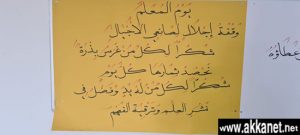 يَومُ المُعَلِّمِ
وَقفَةُ إجلالٍ لِصانِعي الأجيَالِ
شُكراً لِكُلِّ مَن غَرَسَ بِذرَةً
نَحصُدُ ثِمارَها كُلَّ يَومٍ
شُكراً لِكُلِّ مَن لَهُ يَدٌ وَفَضلٌ في
نَشرِ العِلمِ وَتَرقِيَةِ الفَهمِ
www.akkanet.net